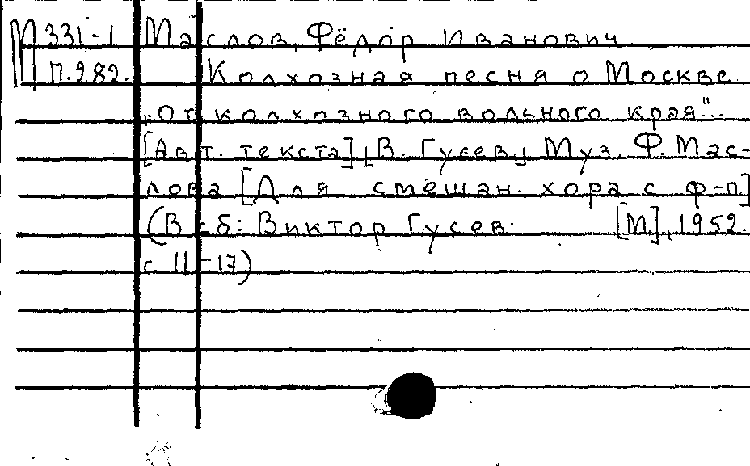 М 331-1 Маслов, Фёдор Иванович
П.282. Колхозная песня о Москве.
„От колхозного вольного края".
[Авт. текста] В. Гусев, Муз. Ф. Мас-
лова [Для смешан. хора с ф-п]
(В сб: Виктор Гусев. [М], 1952.
с 11-17)